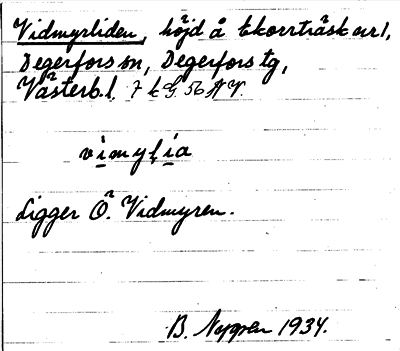 Vidmyrliden, höjd å Ekorrträsk nr 1,
Degerfors sn, Degerfors tg,
Västerb.l. 7 k G. 56 A V.
vimyḷia
Ligger Ö. Vidmyren.
B. Nygren 1934.